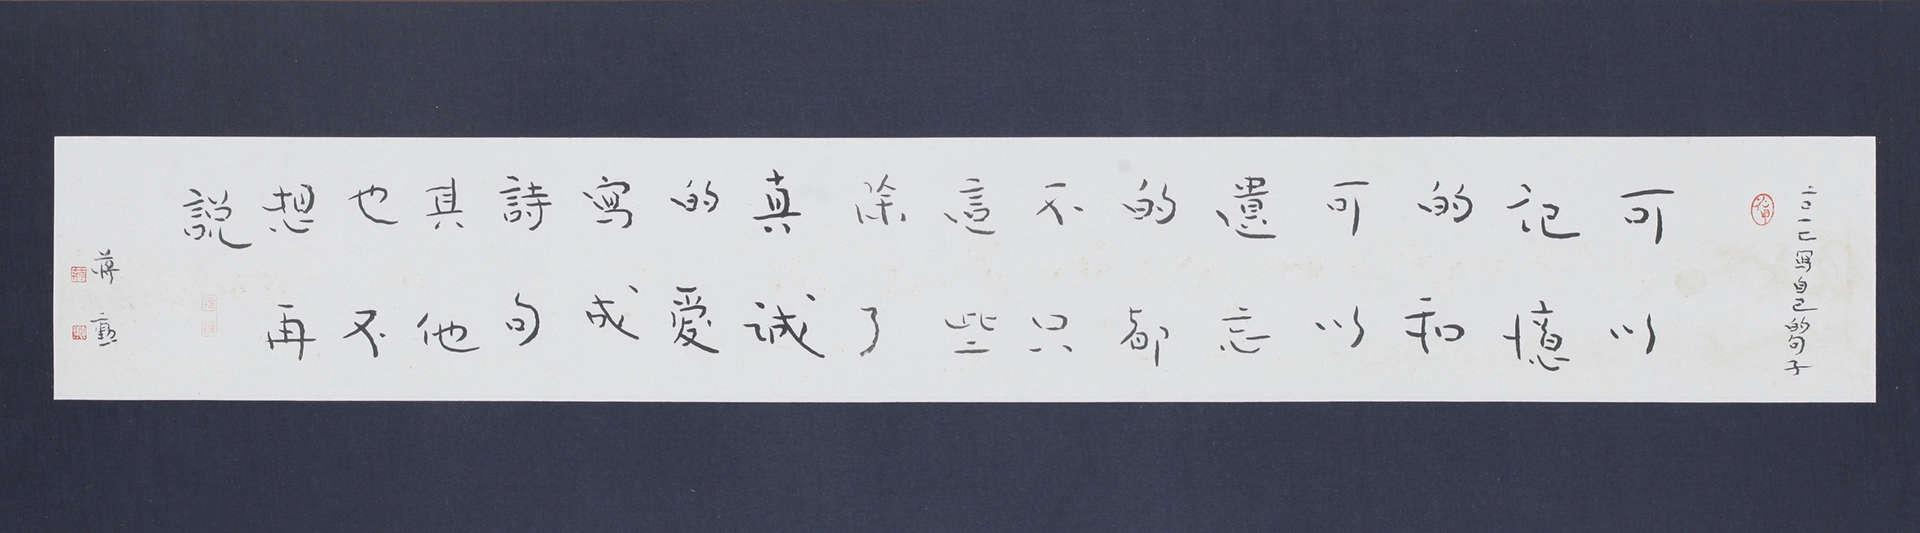 寫自己的句子
可以
記憶
的和
可以
遺忘
的都
不只
這些
除了
真誠
的愛
寫成
詩句
其他
也不
想再
說
蔣勳